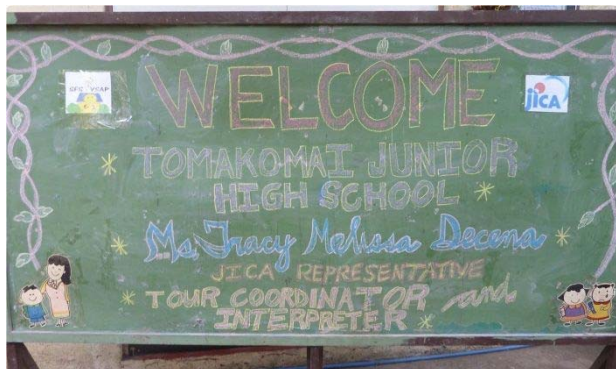 WELCOME
JICA
TOMAKOMAI JUNIOR
HIGH SCHOOL
Ms. Tracy Melissa Decena
JICA REPRESENTATIVE
TOUR COORDINATOR and
INTERPRETER